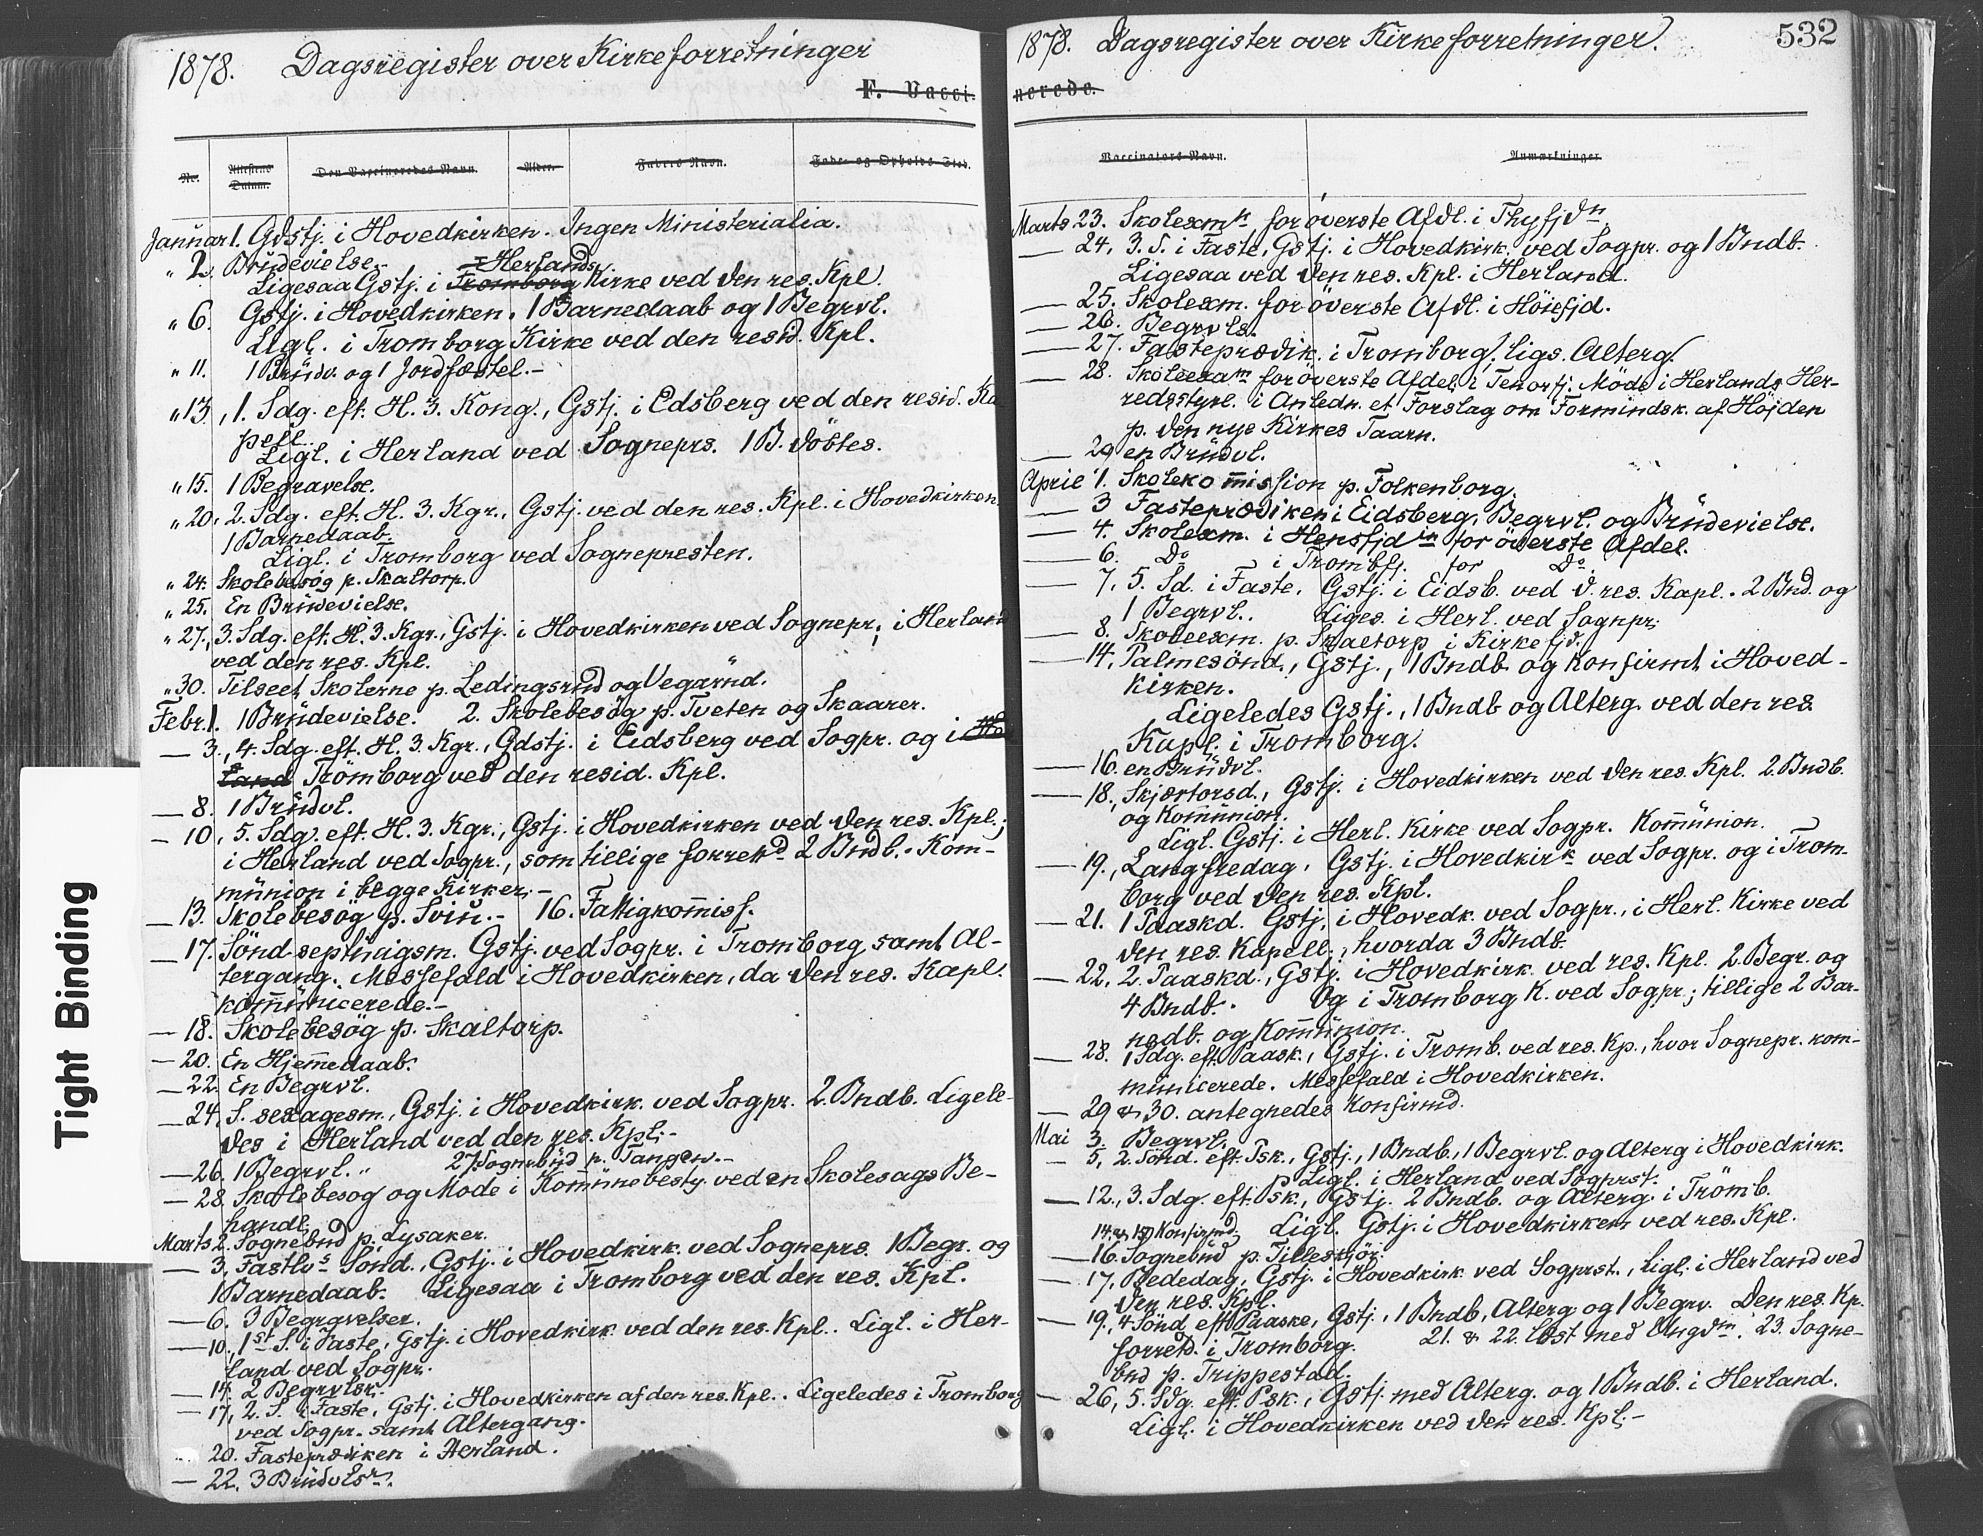 1878. Dagsregister over Kirkeforretninger
F. Vacci-
No.
Attestens Datum.
Den Vaccineredes Navn.
Alder.
Faders Navn.
Føde- og Opholds-Sted.
Januar 1. Gdstj. i Hovedkirken. Ingen Ministerialia.
" 2. Brüdevielse.-
Herlands
Ligesaa Gstj. i Tromborg Kirke ved den res. Kpl.
" 6. Gstj. i Hovedkirken. 1 Barnedaab og 1 Begrvl.
Ligl. i Tromborg Kirke ved den resid. Kpl.
" 11. 1 Brüdv. og 1 Jordfæstel.-
" 13, 1. Sdg. eft. H. 3. Kong., Gstj. i Edsberg ved den resid. Ka
pell.
Ligl. i Herland ved Sogneprs. 1 B. döbtes.
" 15. 1 Begravelse.
" 20, 2. Sdg. eft. H. 3. Kgr., Gstj. ved den res. Kpl. i Hovedkirken.
1 Barnedaab.
Ligl. i Tromborg ved Sognepresten.
" 24. Skolebesög p. Skaltorp.
" 25. En Brüdevielse.
" 27, 3. Sdg. eft. H. 3. Kgr., Gstj. i Hovedkirken ved Sognepr; i Herland
ved den res. Kpl.
" 30. Tilseet Skolerne p. Ledingsrud og Vegarüd.
Febr. 1. 1 Brüdevielse. 2. Skolebesög p. Tveten og Skaarer.
— 3., 4. Sdg. eft. H. 3. Kgr., Gdstj. i Eidsberg ved Sogpr. og i Her
land Trömborg ved den resid. Kpl.
— 8. 1 Brüdvl.
— 10, 5. Sdg. eft. H. 3. Kgr., Gstj. i Hovedkirken ved den res. Kpl.;
i Herland ved Sogpr., som tillige forretd 2 Bndb. Kom-
münion i begge Kirker.-
— 13. Skolebesög p. Svin.- 16. Fattigkommiss.
— 17. Sönd septuagsm. Gstj. ved Sogpr. i Tromborg samt Al-
tergang. Messefald i Hovedkirken, da den res. Kapl.
kommünicerede.-
— 18. Skolebesög p. Skaltorp.
— 20. En Hjemmedaab.
— 22. En Begrvl.
— 24. S. sexagesm., Gstj. i Hovedkirk. ved Sogpr. 2. Bndb. Ligele-
des i Herland ved den res. Kpl.-
— 26. 1 Begrvl. " 27. Sognebüd p. Tangen.-
— 28. Skolebesog og Mode i Komünebesty. ved en Skolesags Be-
handl.
Marts 2. Sognebud p. Lysaker.
— 3. Fastlvs Sönd., Gstj. i Hovedkirk. ved Sogneprs. 1 Begr. og
1 Barnedaab. Ligesaa i Tromborg ved den res. Kpl.
— 6. 3 Begravelser.
— 10., 1st S. i Faste, Gstj. i Hovedkirk. ved den res. Kpl.. Ligl. i Her-
land ved Sogpr.
— 14. 2 Begrvlsr.
— 17, 2. S. i Faste, Gstj. i Hovedkirken af den res. Kpl.. Ligeledes i Tromborg
ved Sogpr. samt Altergang.
20. Fasteprædiken i Herland.
— 22. 3 Brüdvlsr.
1878. Dagsregister over Kirkeforretninger.
532
nerede.
Vaccinators Navn.
Anmærkninger.
Marts 23. Skolexmn for överste Afdl. i Thyfjdn
— 24. 3. S. i Faste, Gstj. i Hovedkirk. ved Sogpr. og 1 Bndb.
Ligesaa ved den res. Kpl. i Herland.
— 25. Skolexm. for överste Afdl. i Höiefjd.
— 26. Begrvls.
— 27. Fasteprædik. i Tromborg. ligs. Alterg.
— 28. Skoleexam for överste Afdel. i Tenorfj. Möde i Herlands Her-
redsstyrl. i Anledn. et Forslag om Formindsk. af Höjden
p. den nye Kirkes Taarn.
— 29 en Brüdvl.
April 1. Skolekommission p. Folkenborg.
— 3 Fasteprædiken i Eidsberg, Begrvl. og Brüdevielse.
— 4. Skolexm. i Hensfjdin for överste Afdel.
— 6. Do i Trombfj. for Do.
— 7, 5. Sd. i Faste. Gstj. i Eidsb. ved d. res. Kapl. 2 Bnd. og
1 Begrvl.. Liges. i Herl. ved Sognpr;
— 8. Skoleexm. p. Skaltorp i Kirkefjd.
— 14. Palmesönd., Gstj., 1 Bndb og Konfirmt i Hoved-
kirken.
Ligeledes Gstj., 1 Bndb og Alterg. ved den res
Kapl. i Tromborg.
— 16. en Brüdvl.
— 18., Skjærtorsd., Gstj. i Hovedkirken ved den res. Kpl. 2. Bndb.
og Kommünion.
Ligl. Gstj. i Herl. Kirke ved Sogpr. Kommünion.
— 19., Langfredag, Gstj. i Hovedkirk ved Sogpr. og i Trom-
borg ved den res. Kpl.
— 21. 1 Paaskd. Gstj. i Hovedk. ved Sogpr., i Herl. Kirke ved
den res. Kapell., hvorda 3 Bndb.
— 22, 2. Paaskd., Gstj. i Hovedkirk. ved res. Kpl. 2. Begr. og
4 Bndb. Og i Tromborg K. ved Sogpr.; tillige 2 Bar-
nedb. og Kommünion.
— 28. 1 Sdg. eft. Paask., Gstj. i Tromb. ved res. Kp., hvor Sognepr. kom-
münicerede. Messefald i Hovedkirken.
— 29 & 30. antegnedes Konfirmd.
Mai 3. Begrvl.
— 5, 2. Sönd. eft. Psk., Gstj., 1 Bndb., 1 Begrvl. og Alterg i Hovedkirk.
Ligl. i Herland ved Sogprst.
— 12., 3. Sdg. eft. Psk., Gstj. 2 Bndb. og Alterg. i Trömb.
14. & 15) Konfirmd. Ligl. Gstj. i Hovedkirken ved res. Kpl.
— 16. Sognebud p. Tillerstjör.
— 17. Bededag, Gstj. i Hovedkirk. ved Sogprst., Ligl. i Herland ved
den res. Kpl.
— 19., 4 Sönd eft Paaske, Gstj., 1 Bndb, Alterg og 1 Begrv. Den res. Kp.
forretd. i Tromborg. 21. & 22. læst med Ungdm. 23. Sogne-
bud p. Trippestad.
— 26, 5. Sdg. eft. Psk., Gstj. med Alterg. og 1 Bndb. i Herland.
Ligl. i Hovedkirken ved den res. Kpl.-
Tight Binding